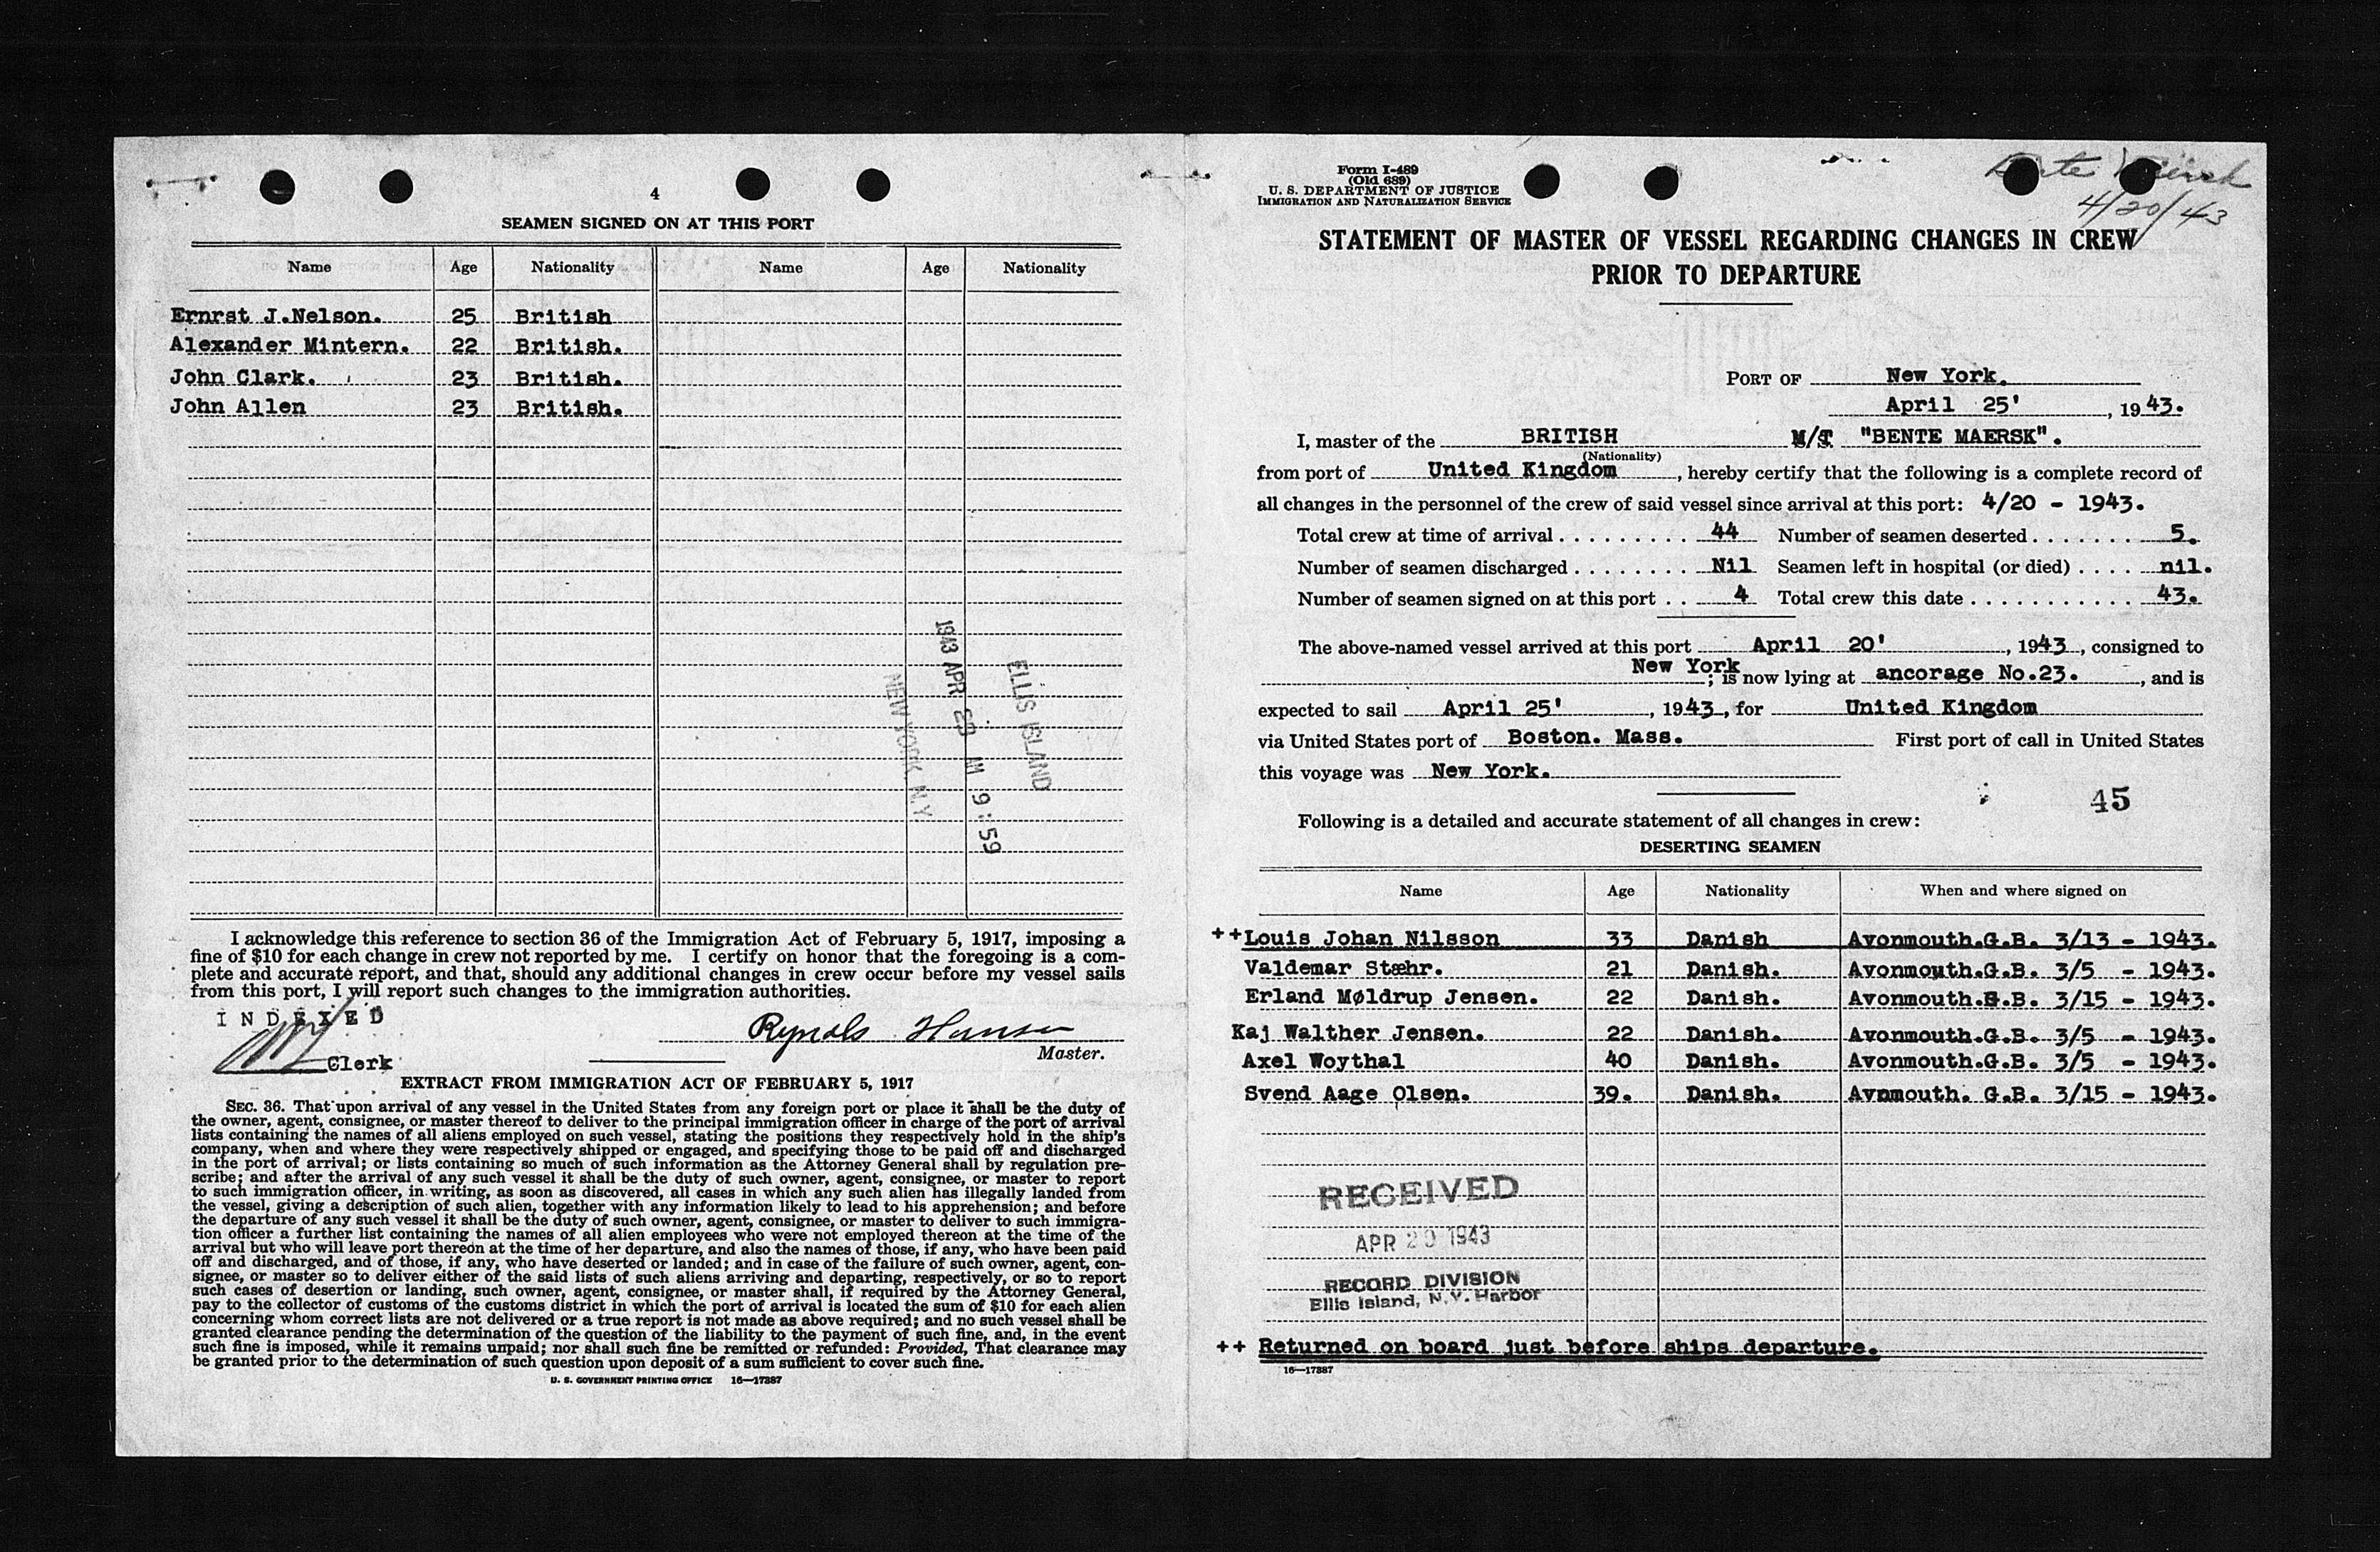 4
SEAMEN SIGNED ON AT THIS PORT
Name Age Nationality Name Age Nationality
Ernrst J.Nelson. 25 British
Alexander Mintern. 22 British.
John Clark. 23 British.
John Allen 23 British.
ELLIS ISLAND
1943 APR 29 M 9:59
NEW YORK, N.Y
I acknowledge this reference to section 36 of the Immigration Act of February 5, 1917, imposing a
fine of $10 for each change in crew not reported by me. I certify on honor that the foregoing is a com-
plete and accurate report, and that, should any additional changes in crew occur before my vessel sails
from this port, I will report such changes to the immigration authorities.
INDEXED
Clerk
Hansen
Master.
EXTRACT FROM IMMIGRATION ACT OF FEBRUARY 5, 1917
SEC. 36. That upon arrival of any vessel in the United States from any foreign port or place it shall be the duty of
the owner, agent, consignee, or master thereof to deliver to the principal immigration officer in charge of the port of arrival
lists containing the names of all aliens employed on such vessel, stating the positions they respectively hold in the ship's
company, when and where they were respectively shipped or engaged, and specifying those to be paid off and discharged
in the port of arrival; or lists containing so much of such information as the Attorney General shall by regulation pre-
scribe; and after the arrival of any such vessel it shall be the duty of such owner, agent, consignee, or master to report
to such immigration officer, in writing, as soon as discovered, all cases in which any such alien has illegally landed from
the vessel, giving a description of such alien, together with any information likely to lead to his apprehension; and before
the departure of any such vessel it shall be the duty of such owner, agent, consignee, or master to deliver to such immigra-
tion officer a further list containing the names of all alien employees who were not employed thereon at the time of the
arrival but who will leave port thereon at the time of her departure, and also the names of those, if any, who have been paid
off and discharged, and of those, if any, who have deserted or landed; and in case of the failure of such owner, agent, con-
signee, or master so to deliver either of the said lists of such aliens arriving and departing, respectively, or so to report
such cases of desertion or landing, such owner, agent, consignee, or master shall, if required by the Attorney General,
pay to the collector of customs of the customs district in which the port of arrival is located the sum of $10 for each alien
concerning whom correct lists are not delivered or a true report is not made as above required; and no such vessel shall be
granted clearance pending the determination of the question of the liability to the payment of such fine, and, in the event
such fine is imposed, while it remains unpaid; nor shall such fine be remitted or refunded: Provided, That clearance may
be granted prior to the determination of such question upon deposit of a sum sufficient to cover such fine.
U. S. GOVERNMENT PRINTING OFFICE 16—17887
Form I-489
(Old 689)
U. S. DEPARTMENT OF JUSTICE
IMMIGRATION AND NATURALIZATION SERVICE
4/20/43
STATEMENT OF MASTER OF VESSEL REGARDING CHANGES IN CREW
PRIOR TO DEPARTURE
PORT OF New York.
April 25' , 1943.
I, master of the BRITISH M/T "BENTE MAERSK".
(Nationality)
from port of United Kingdom , hereby certify that the following is a complete record of
all changes in the personnel of the crew of said vessel since arrival at this port: 4/20 - 1943.
Total crew at time of arrival . . . . . . . . . . 44 Number of seamen deserted . . . . . . . 5.
Number of seamen discharged . . . . . . . . Nil Seamen left in hospital (or died) . . . . nil.
Number of seamen signed on at this port . . 4 Total crew this date . . . . . . . . . . . . 43.
The above-named vessel arrived at this port April 20' , 1943 , consigned to
New York ; is now lying at ancorage No.23. , and is
expected to sail April 25' , 1943 , for United Kingdom
via United States port of Boston. Mass. First port of call in United States
this voyage was New York.
45
Following is a detailed and accurate statement of all changes in crew:
DESERTING SEAMEN
Name Age Nationality When and where signed on
++Louis Johan Nilsson 33 Danish Avonmouth.G.B. 3/13 - 1943.
Valdemar Stæhr. 21 Danish. Avonmouth.G.B. 3/5 - 1943.
Erland Møldrup Jensen. 22 Danish. Avonmouth.G.B. 3/15 - 1943.
Kaj Walther Jensen. 22 Danish. Avonmouth.G.B. 3/5 - 1943.
Axel Woythal 40 Danish. Avonmouth.G.B. 3/5 - 1943.
Svend Aage Olsen. 39. Danish. Avnmouth. G.B. 3/15 - 1943.
RECEIVED
APR 20 1943
RECORD DIVISION
Ellis Island, N.Y. Harbor
++ Returned on board just before ships departure.
16—17887